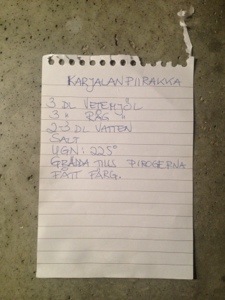 KARJALANPIIRAKKA
3 DL VETEMJÖL
3 " RÅG "
2-3 DL VATTEN
SALT
UGN: 225°
GRÄDDA TILLS PIROGERNA
FÅTT FÄRG.